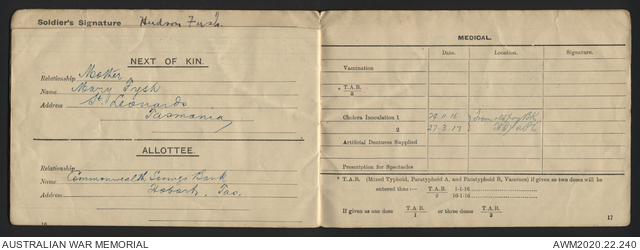 Soldier's Signature Hudson Fysh.
NEXT OF KIN.
Relationship Mother
Name Mary Fysh
Address St. Leonards
Tasmania
ALLOTTEE.
Relationship
Name Commonwealth Savings Bank
Address Hobart, Tas.
16
MEDICAL.
Date. Location. Signature.
Vaccination
* T.A.B.
2
Cholera Inoculation 1 29 11 16
2 27.3.17
Artificial Dentures Supplied
Prescription for Spectacles
* T.A.B. (Mixed Typhoid, Paratyphoid A, and Paratyphoid B, Vaccines) if given as two doses will be
entered thus:— T.A.B. 1-1-16
2 10-1-16
If given as one dose T.A.B. or three doses T.A.B.
1 3
17
AUSTRALIAN WAR MEMORIAL
AWM2020.22.240